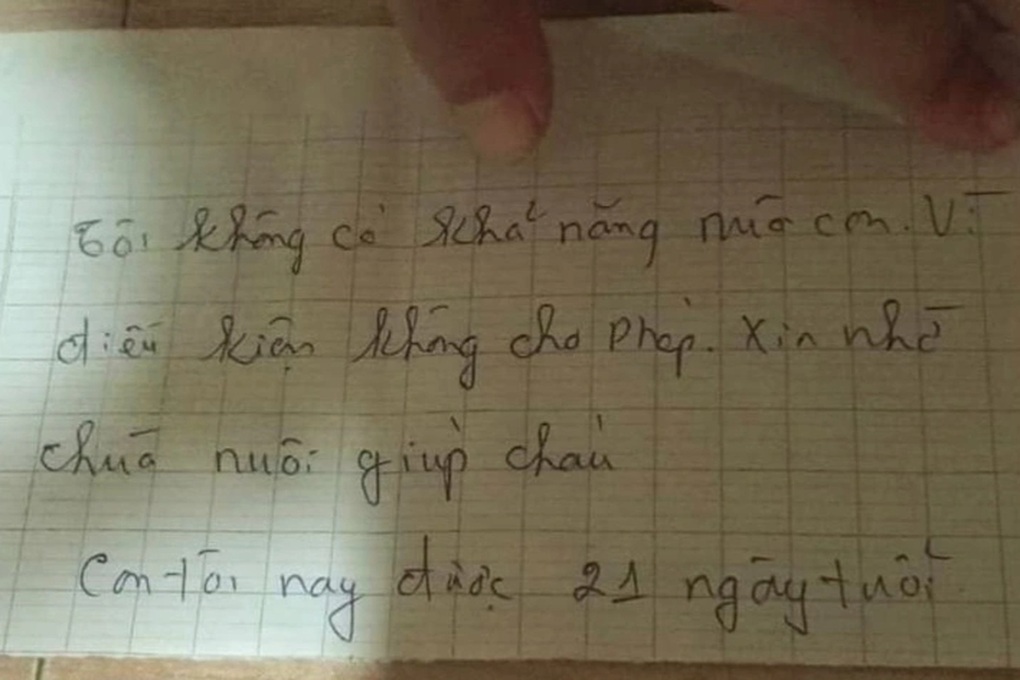 Tôi không có khả năng nuô con. Vì
điều kiện không cho phép. Xin nhờ
chuà nuôi giúp cháu
Con tôi nay được 21 ngày tuổi